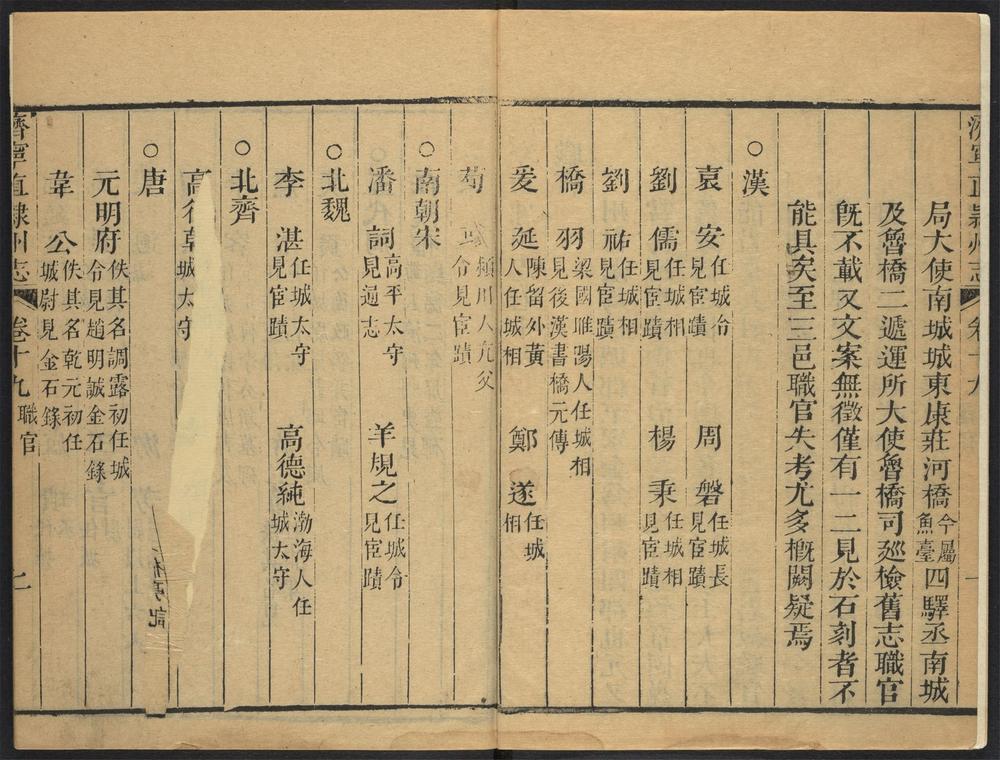 濟寧直隸州志 卷十九
局大使南城城東康莊河橋今屬魚臺四驛丞南城
及魯橋二遞運所大使魯橋司廵檢舊志職官
旣不載又文案無徵僅有一二見於石刻者不
能具矣至三邑職官失考尤多槪闕疑焉
○漢
袁安任城令見宦蹟 周磐任城長見宦蹟
劉儒任城相見宦蹟 楊秉任城相見宦蹟
劉祐任城相見宦蹟
橋羽梁國睢陽人任城相見後漢書橋元傳
爰延陳留外黃人任城相 鄭遂任城相
荀彧潁川人亢父令見宦蹟
○南朝宋
潘詞高平太守見通志 羊規之任城令見宦蹟
○北魏
李湛任城太守見宦蹟 高德純渤海人任城太守
○北齊
高行 城太守
○唐
元明府佚其名調露初任城令見趙明誠金石錄
韋公佚其名乾元初任城尉見金石錄
濟寧直隸州志 卷十九 職官 二